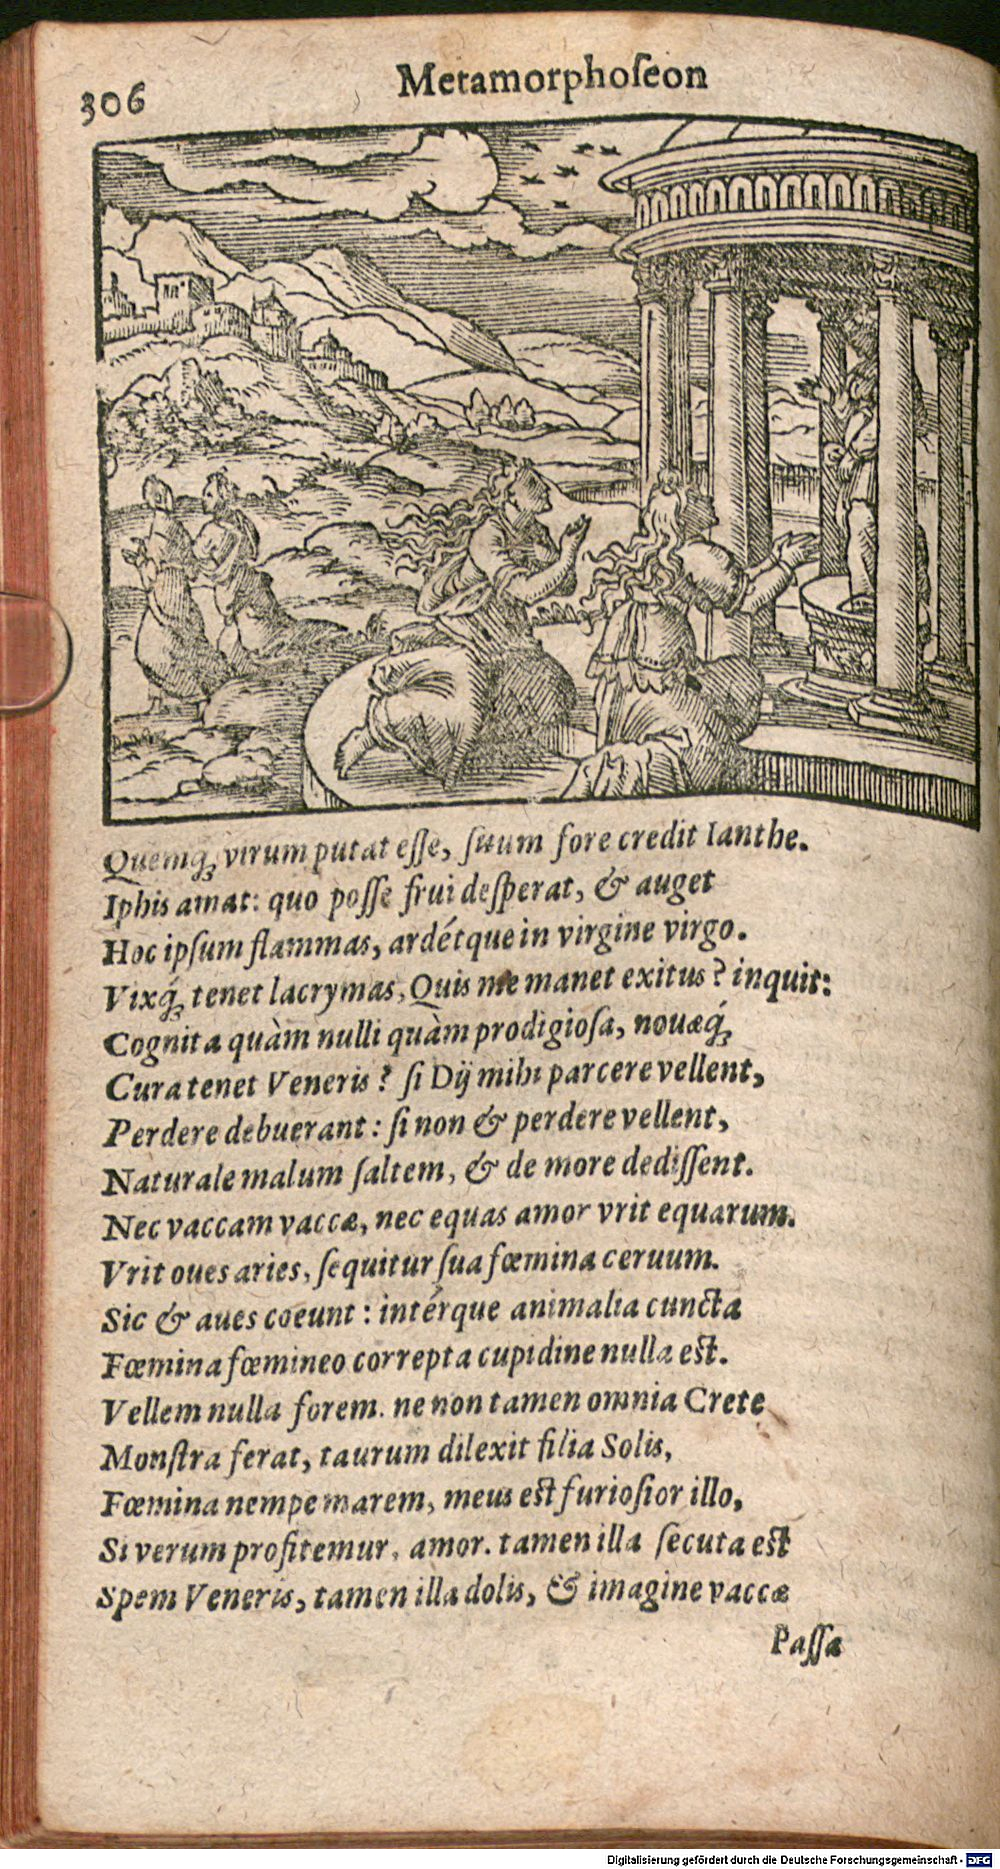 306
Metamorphoſeon
Quemq́; virum putat eſſe, ſuum fore credit Ianthe.
Iphis amat: quo poſſe frui deſperat, & auget
Hoc ipſum flammas, ardétque in virgine virgo.
Vixq́; tenet lacrymas, Quis me manet exitus? inquit:
Cognita quàm nulli quàm prodigioſa, nouæq́;
Cura tenet Veneris? ſi Dij mihi parcere vellent,
Perdere debuerant: ſi non & perdere vellent,
Naturale malum ſaltem, & de more dediſſent.
Nec vaccam vaccæ, nec equas amor vrit equarum.
Vrit oues aries, ſequitur ſua fœmina ceruum.
Sic & aues coeunt: intérque animalia cuncta
Fœmina fœmineo correpta cupidine nulla est.
Vellem nulla forem. ne non tamen omnia Crete
Monſtra ferat, taurum dilexit filia Solis,
Fœmina nempe marem, meus est furioſior illo,
Si verum profitemur, amor. tamen illa ſecuta est
Spem Veneris, tamen illa dolis, & imagine vaccæ
Paſſa
Digitalisierung gefördert durch die Deutsche Forschungsgemeinschaft - DFG